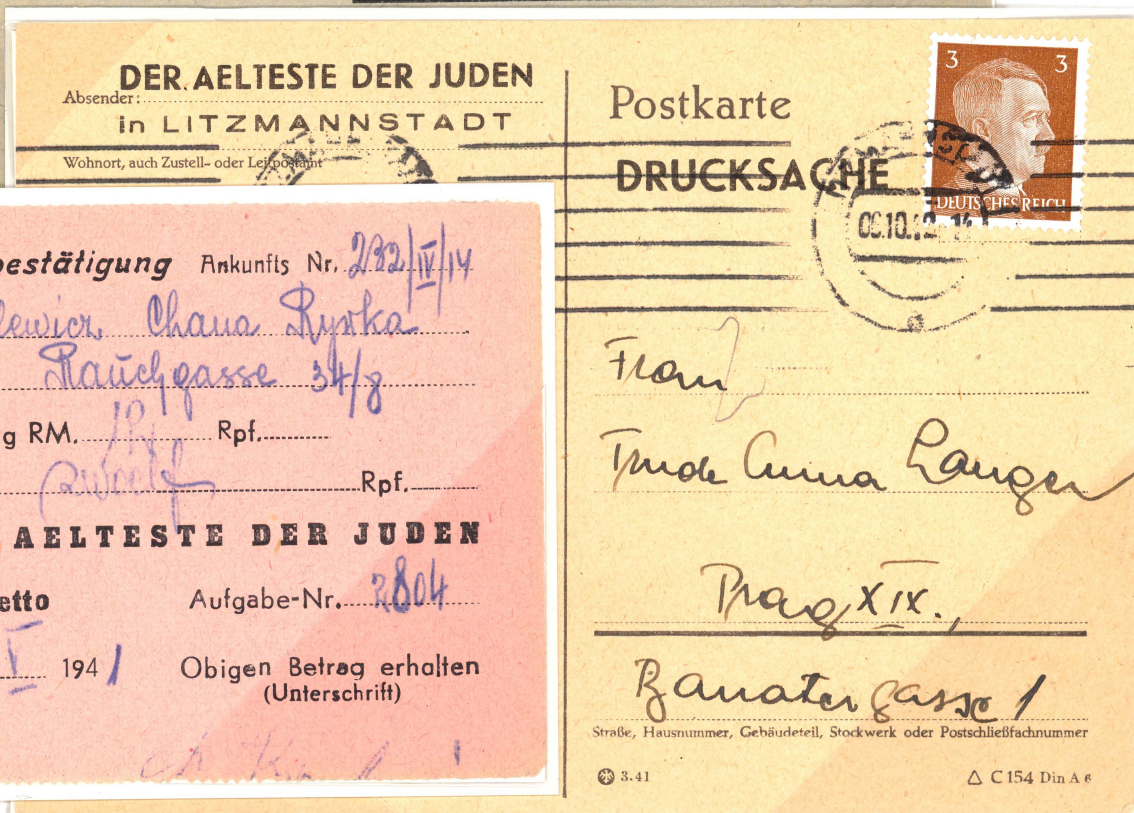 DER AELTESTE DER JUDEN
Absender:
in LITZMANNSTADT
Wohnort, auch Zustell- oder Leitpostamt
Postkarte
DRUCKSACHE
3 3
DEUTSCHES REICH
06.10.42 14
a
Frau
Trude Anna Langer
Prag XIX.,
Banatergasse 1
Straße, Hausnummer, Gebäudeteil, Stockwerk oder Postschließfachnummer
3.41
C 154 Din A 6
bestätigung Ankunfts Nr. 232/IV/14
lewicz Chana Rywka
Rauchgasse 34/8
g RM. Rpf.
Rpf.
AELTESTE DER JUDEN
etto Aufgabe-Nr. 2804
V 1941 Obigen Betrag erhalten
(Unterschrift)